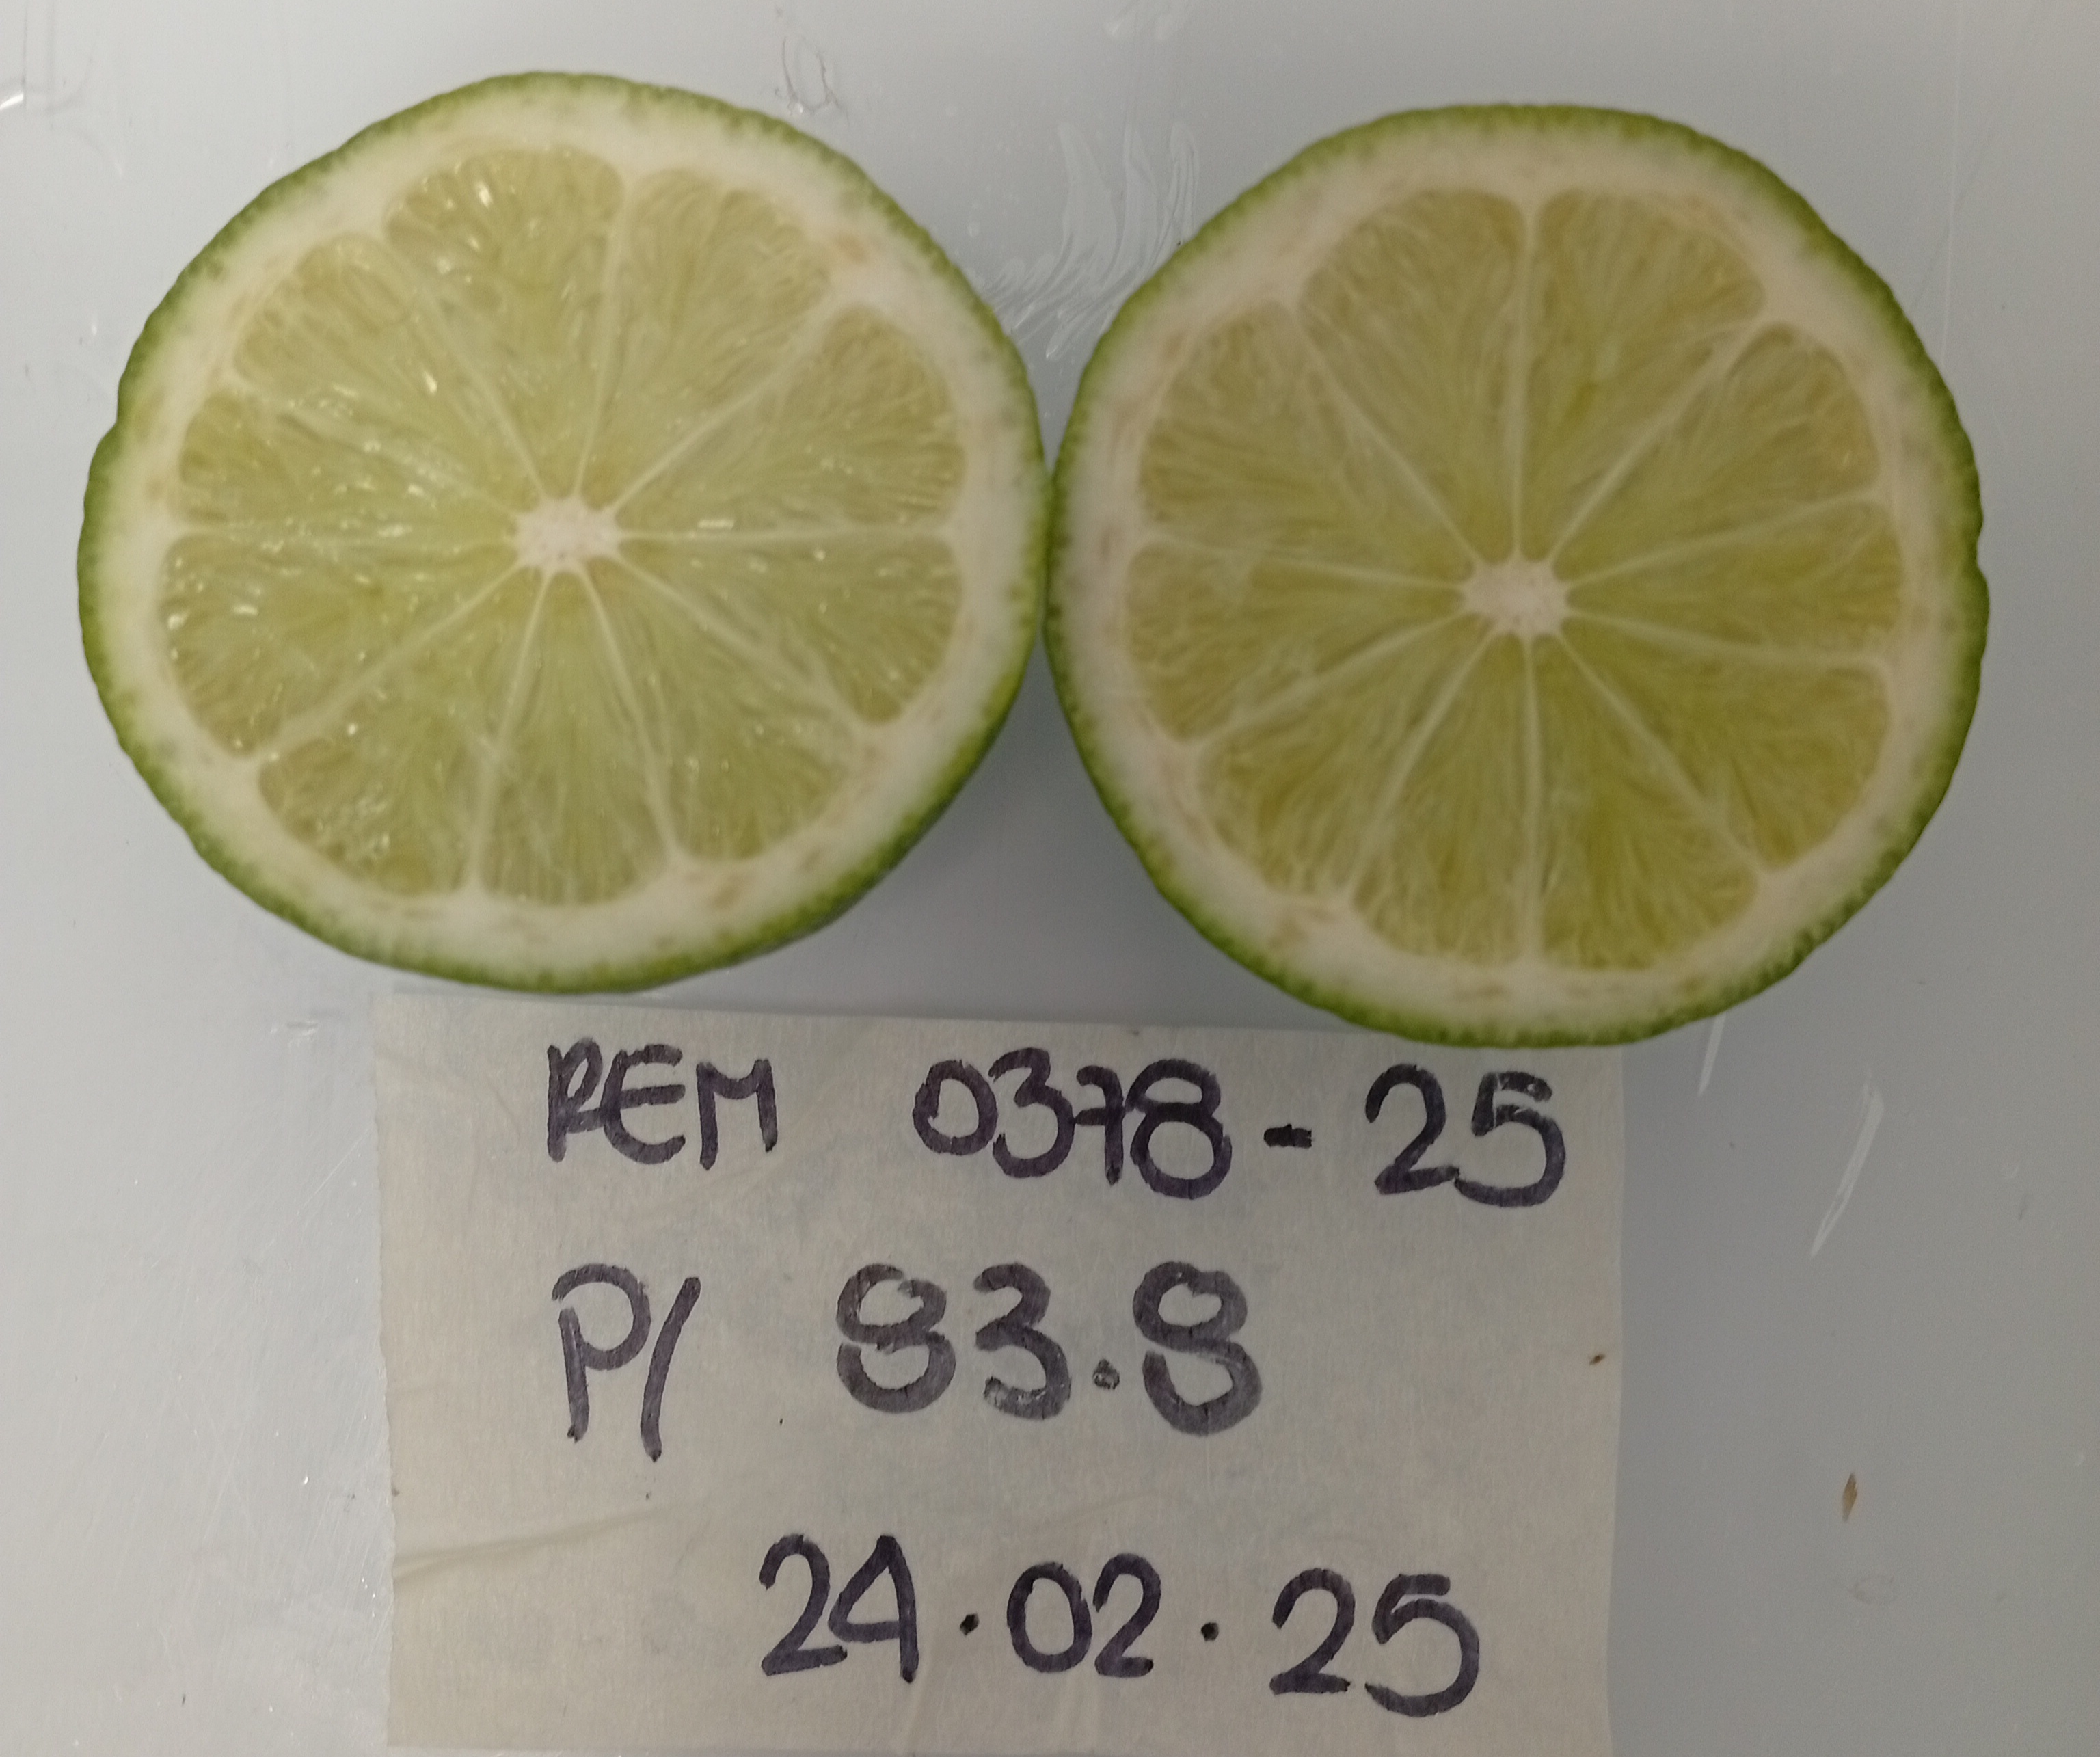 REM 0378-25
P/ 83.8
24.02.25